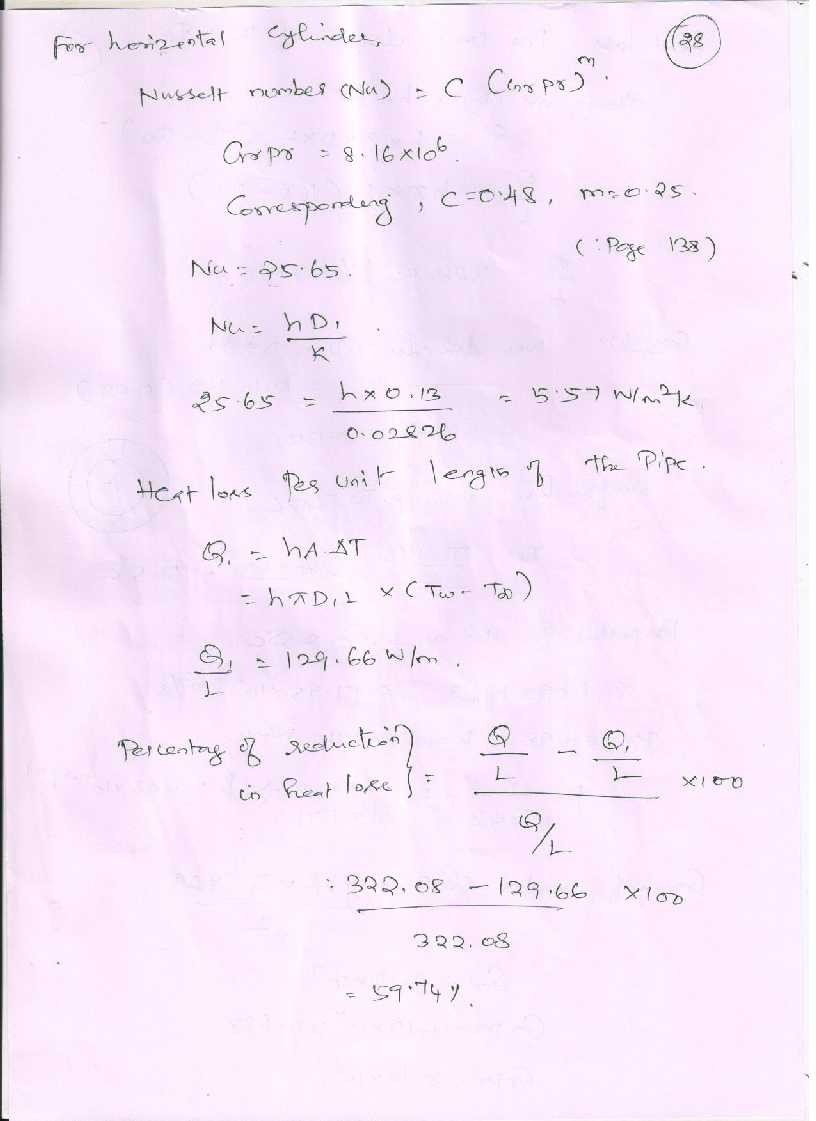 For horizontal Cylinder,
28
Nusselt number (Nu) = C (Gr Pr)^m.
GrPr = 8.16×10^6.
Corresponding, C=0.48, m=0.25.
(: Page 138)
Nu = 25.65.
Nu = hD₁
K
25.65 = h×0.13 = 5.57 W/m²K.
0.02826
Heat loss Per Unit length of the Pipe.
Q₁ = hA.ΔT
= hπD₁L × (Tw - T∞)
Q₁ = 129.66 W/m.
L
Percentag of reduction Q - Q₁
in heat loss } = L L ×100
Q/L
= 322.08 - 129.66 ×100
322.08
= 59.74%.